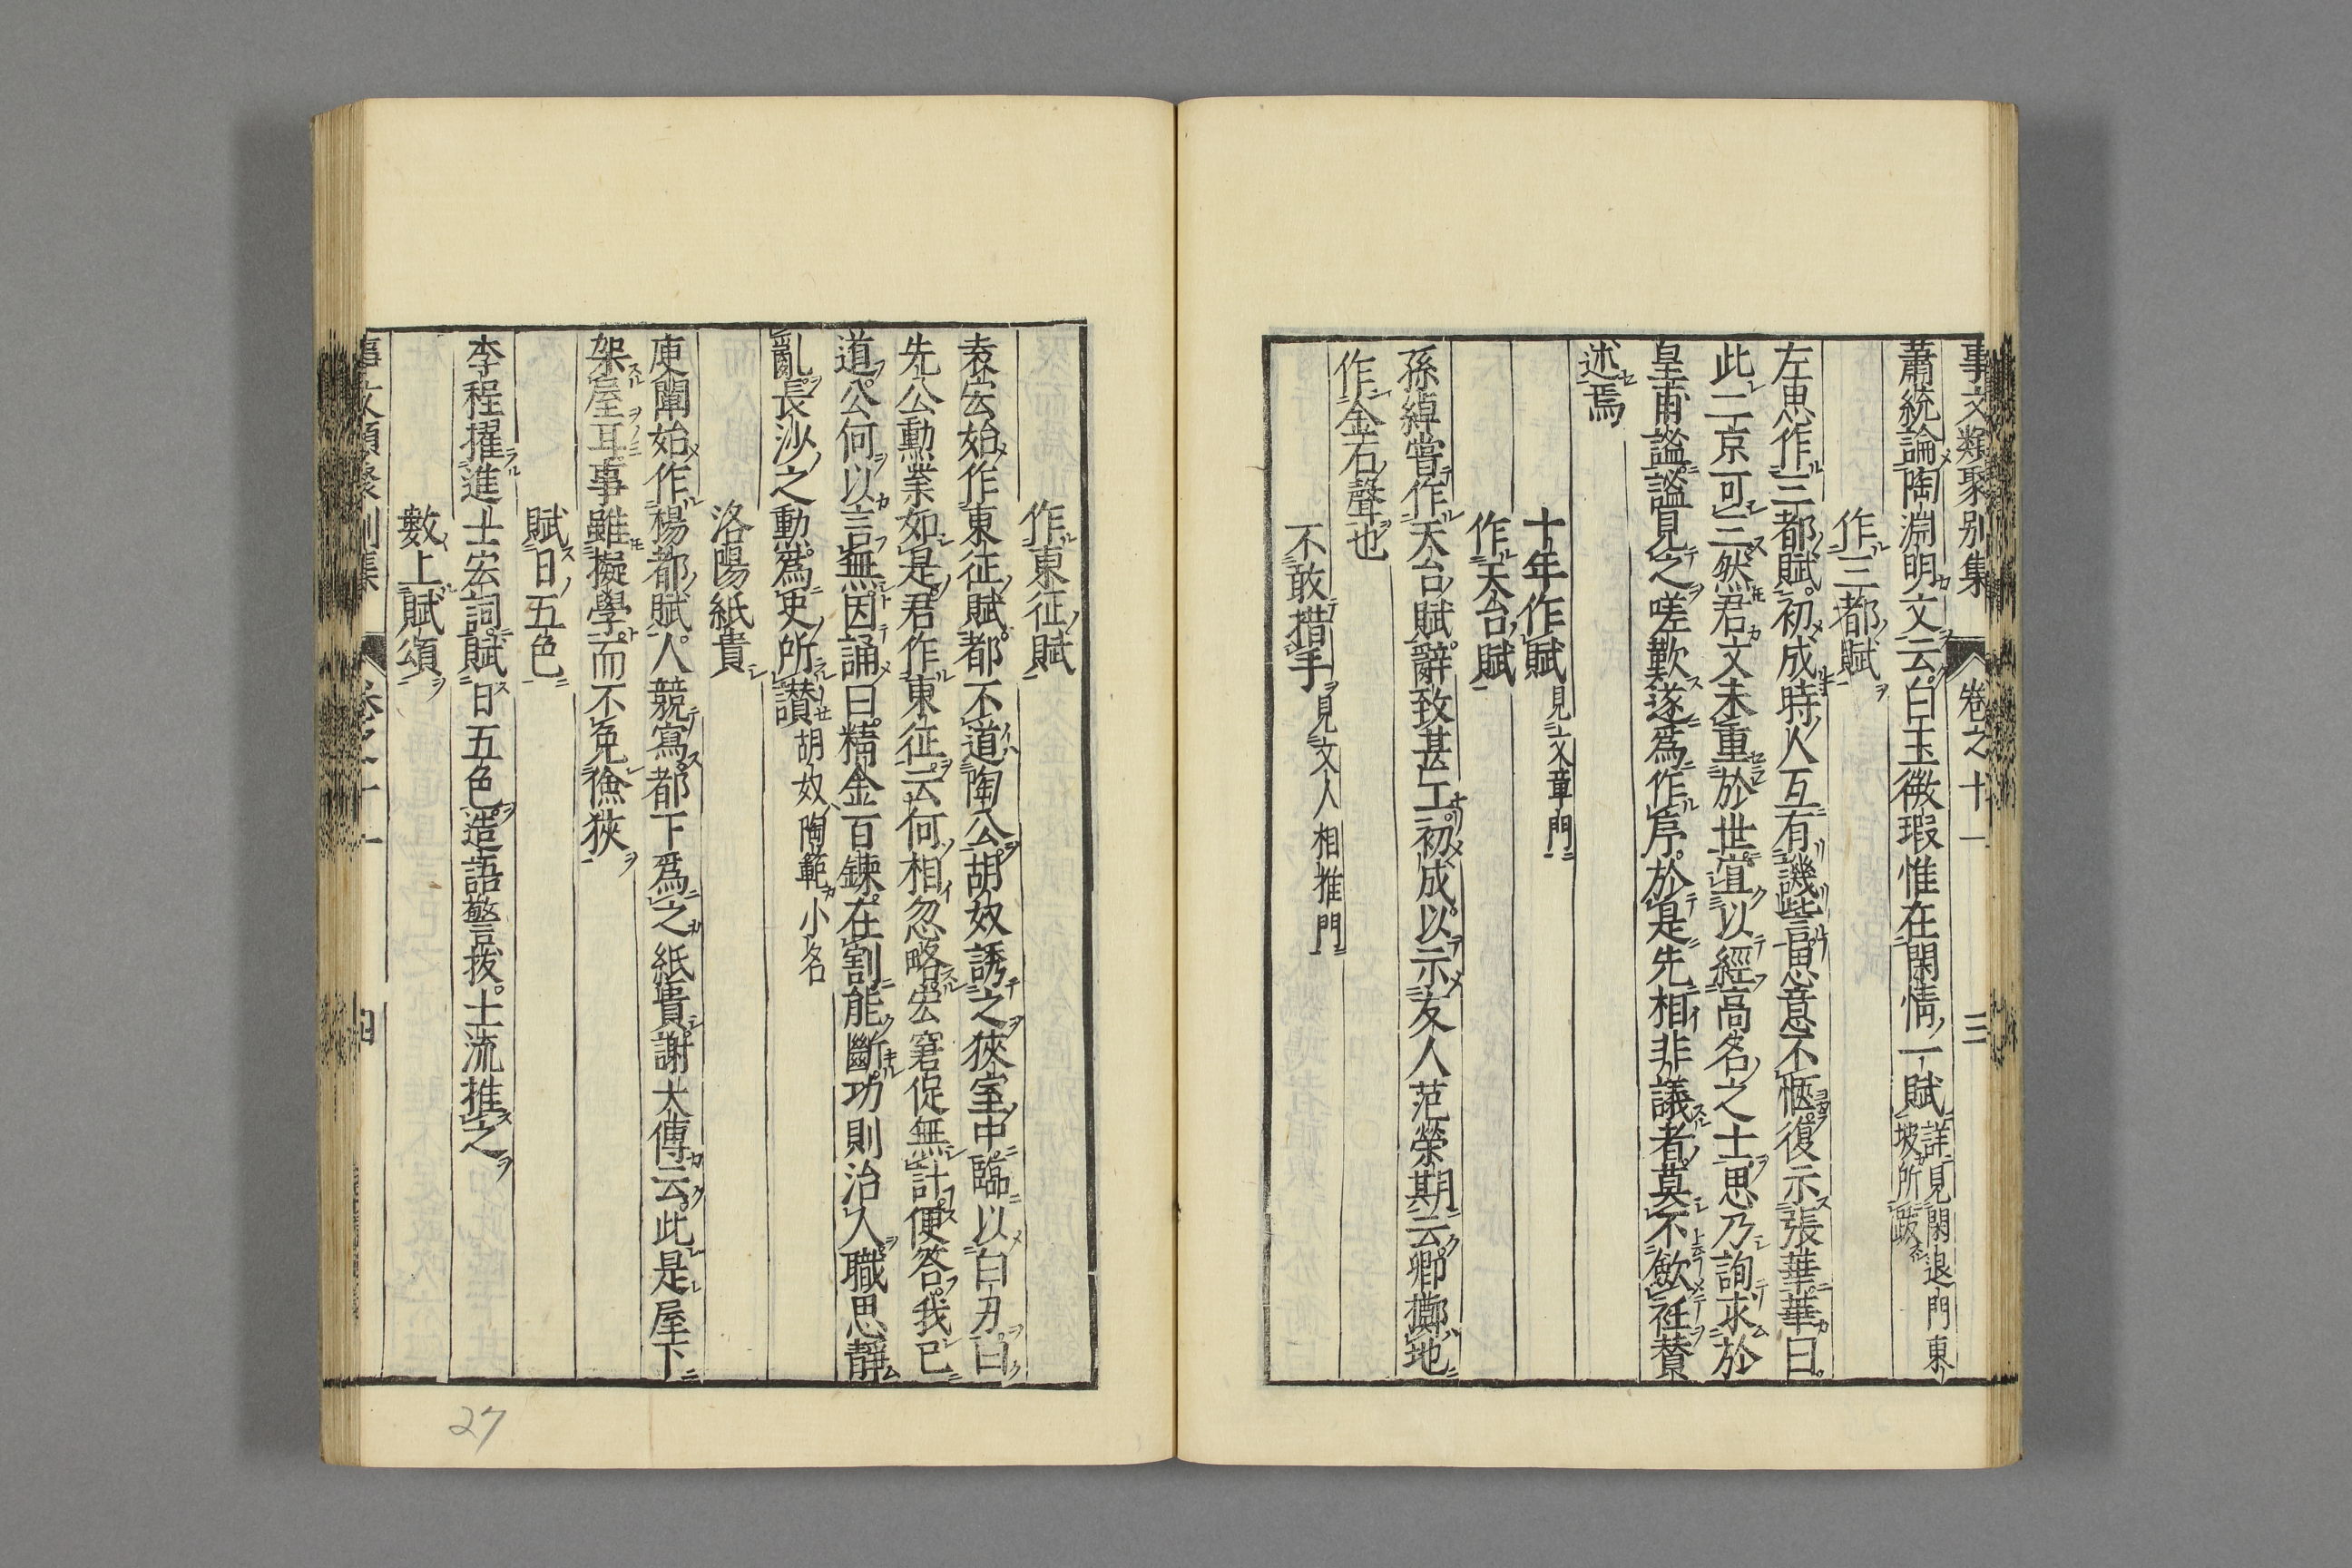 事文類聚别集 卷之十一 三
蕭統論陶淵明文云白玉微瑕惟在閑情一賦詳見閑退門東坡所跋
作三都賦
左思作三都賦初成時人互有譏訾思意不愜復示張華華曰
此二京可三然君文未重於世宜以經高名之士思乃詢求於
皇甫謐謐見之嗟歎遂爲作序於是先相非議者莫不斂衽賛
述焉
十年作賦見文章門
作天台賦
孫綽嘗作天台賦辭致甚工初成以示友人范榮期云卿擲地
作金石聲也
不敢措手見文人相推門
作東征賦
袁宏始作東征賦都不道陶公胡奴誘之狹室中臨以白刃曰
先公勳業如是君作東征云何相忽略宏窘促無計便答我已
道公何以言無因誦曰精金百鍊在割能斷功則治人職思靜
亂長沙之勳爲史所讃胡奴陶範小名
洛陽紙貴
庾闡始作楊都賦人競寫都下爲之紙貴謝太傅云此是屋下
架屋耳事雖擬學而不免儉狹
賦日五色
李程擢進士宏詞賦日五色造語警拔士流推之
數上賦頌
事文類聚别集 卷之十一 四
27